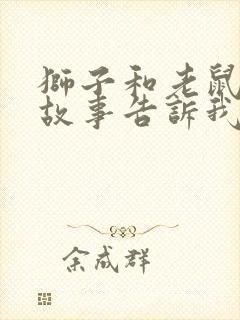 獅子和老鼠
故事告訴我
余成群